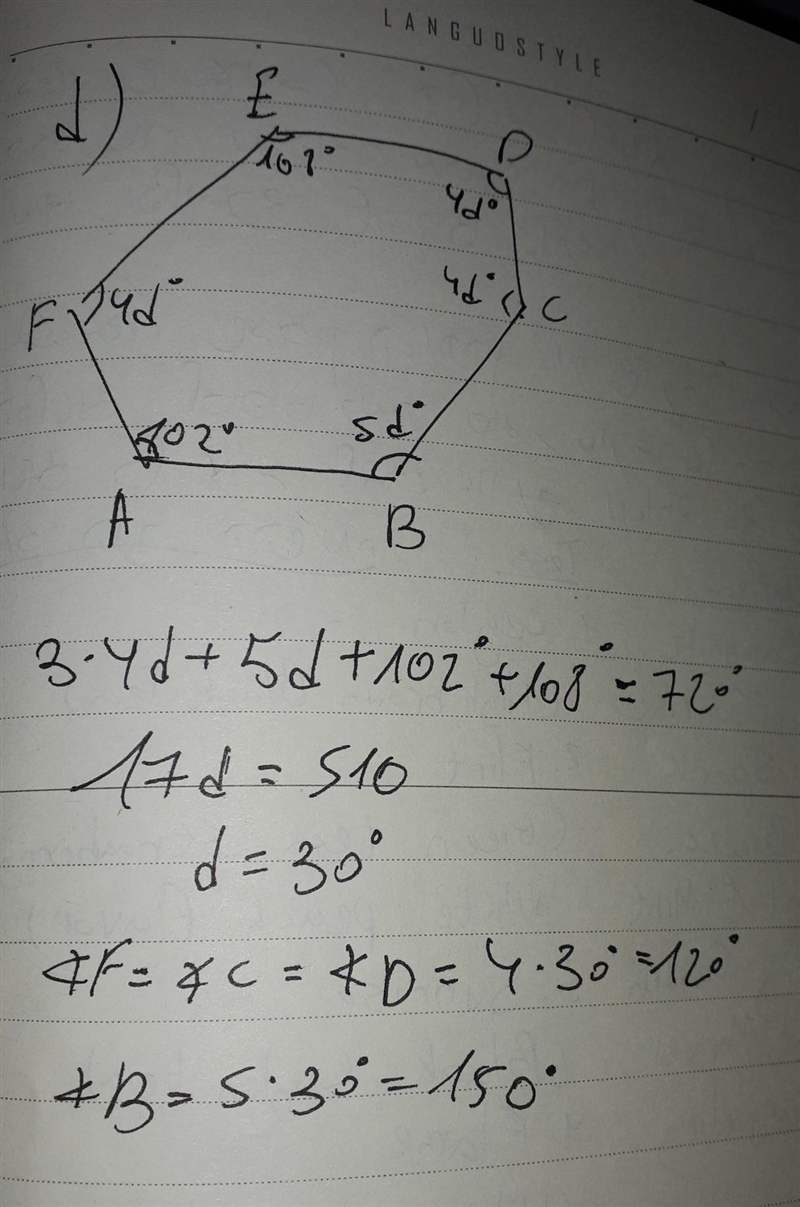 LANGUOSTYLE
d)
E
107°
D
4d°
4d°
C
F
4d°
102°
5d°
A
B
3·4d+5d+102°+108°=720°
17d=510
d=30°
∢F=∢C=∢D=4·30°=120°
∢B=5·30°=150°